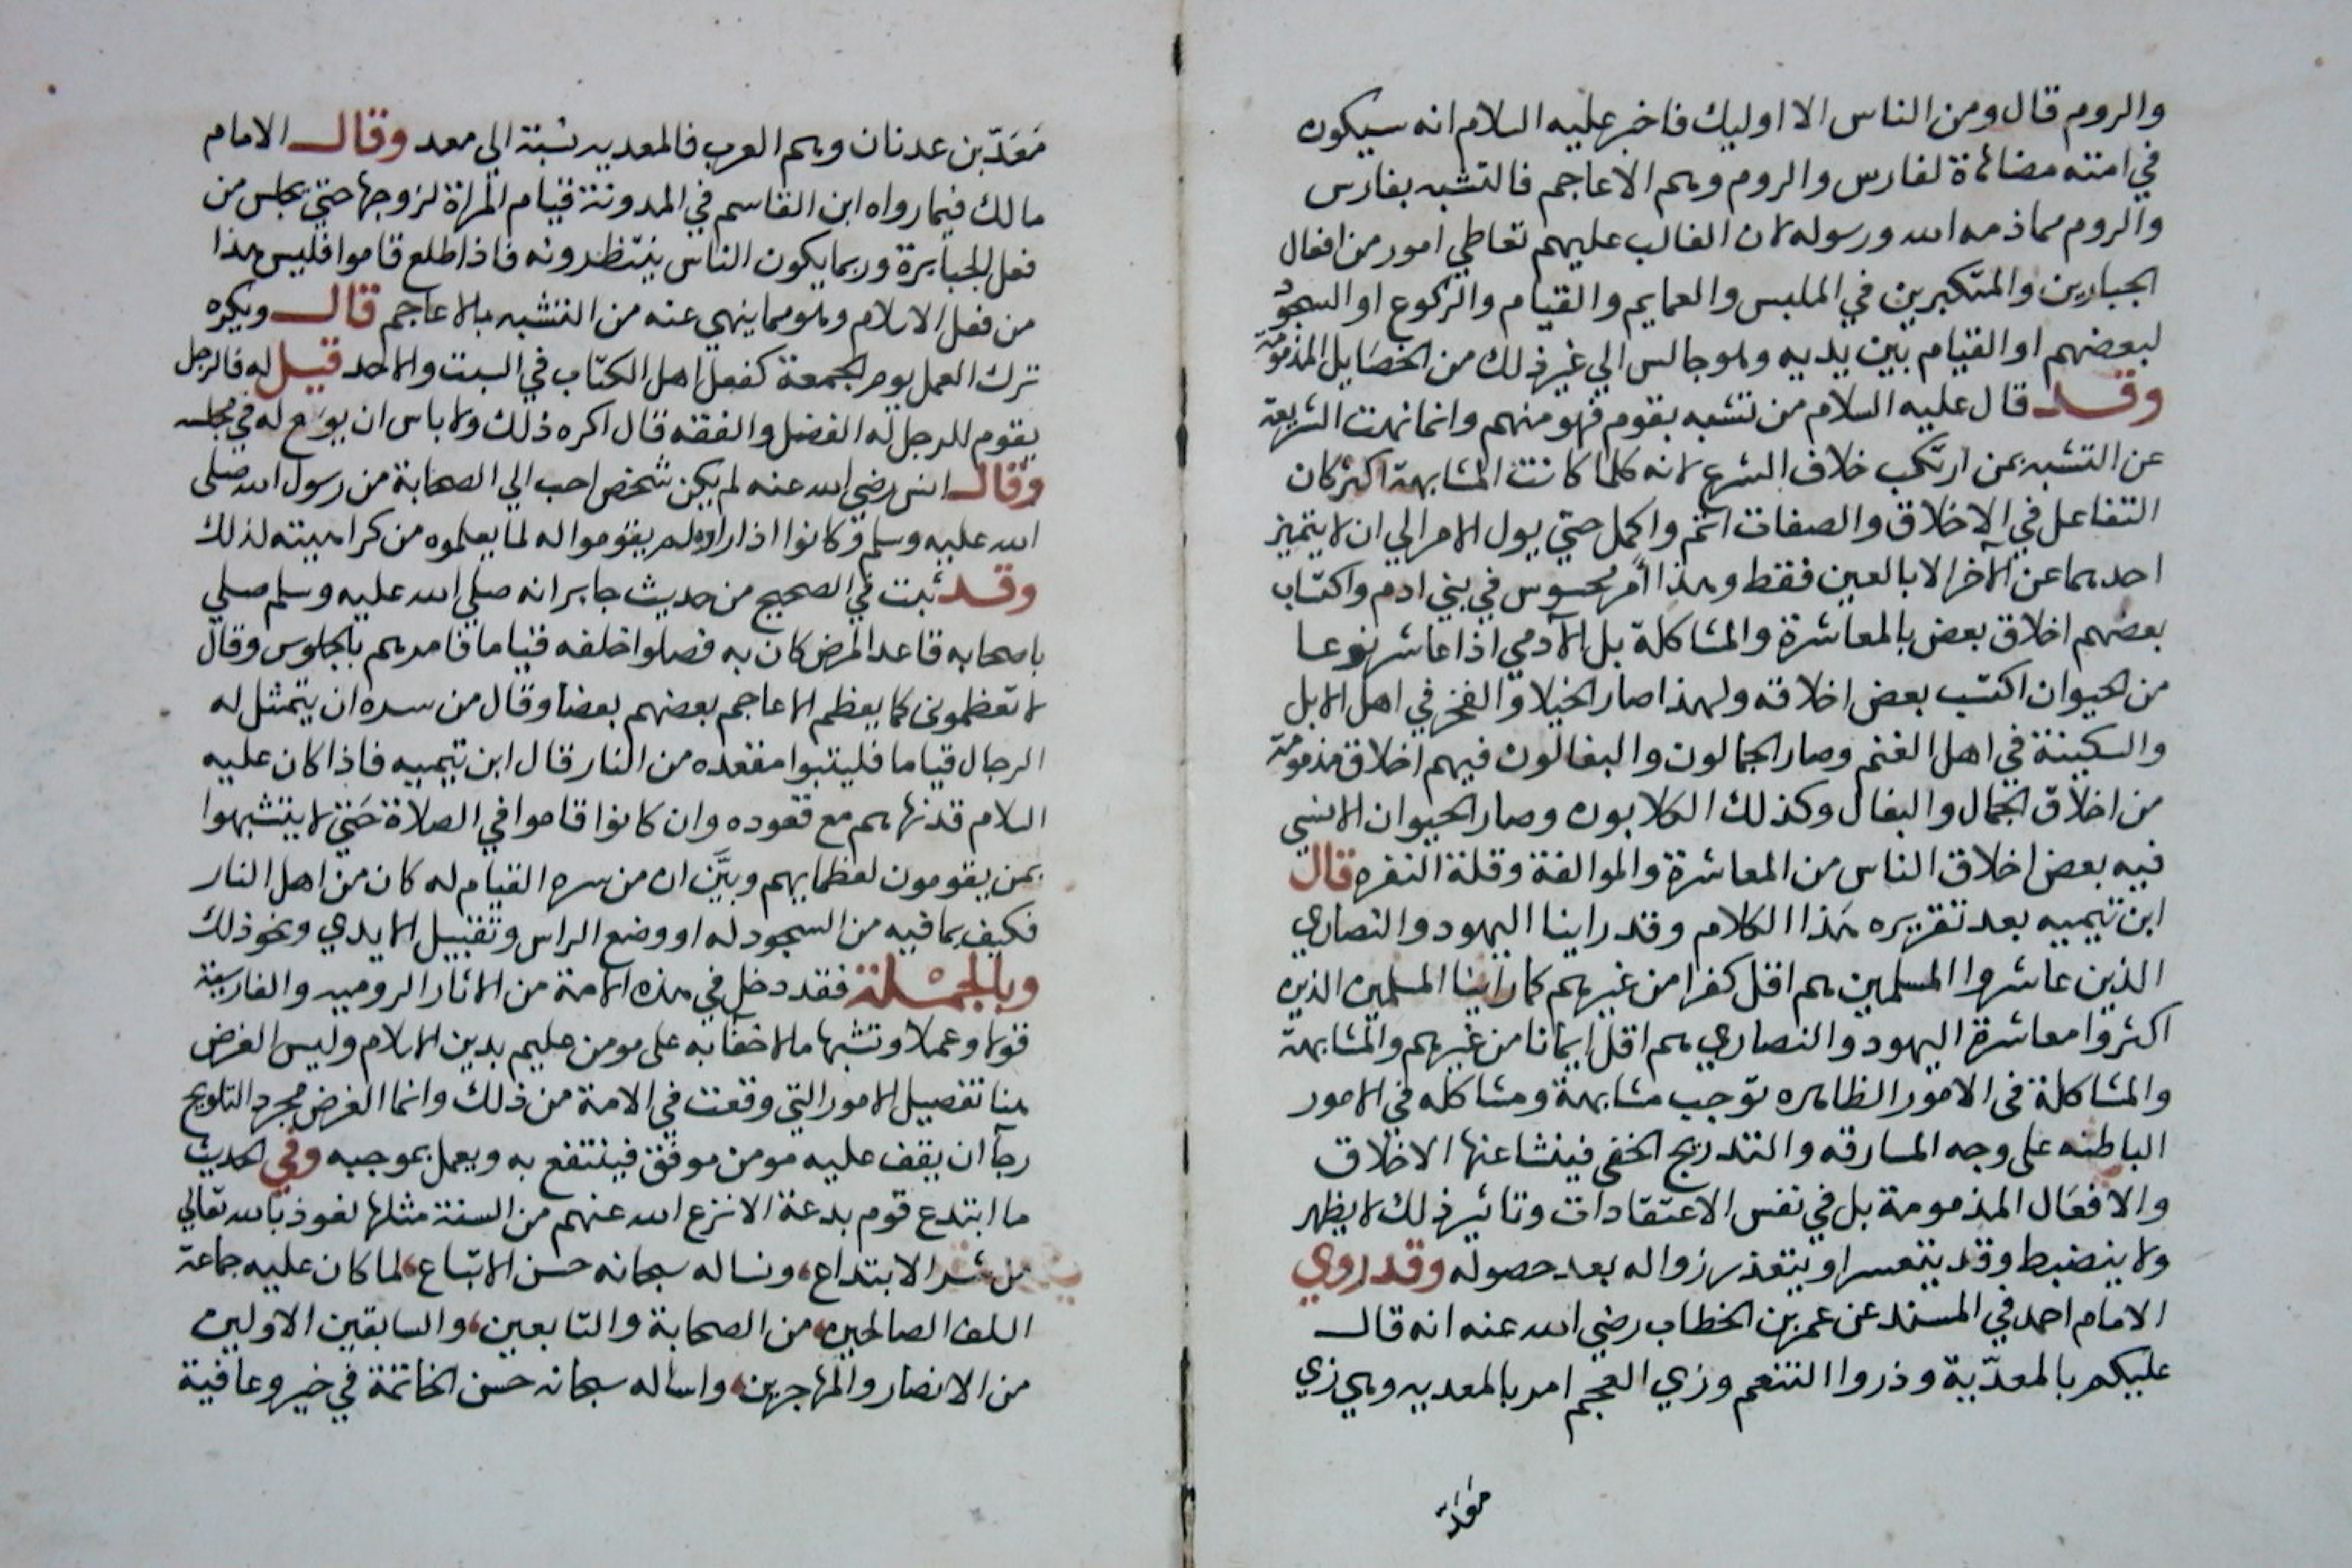 والروم قال ومن الناس الا اوليك فاخبر عليه السلام انه سيكون
في امته مضاهاة لفارس والروم وهم الاعاجم فالتشبه بفارس
والروم مما ذمه الله ورسوله لان الغالب عليهم تعاطي امور من افعال
الجبارين والمتكبرين في الملبس والعمايم والقيام والركوع او السجود
لبعضهم او القيام بين يديه وهو جالس الي غير ذلك من الخصايل المذمومة
وقد قال عليه السلام من تشبه بقوم فهو منهم وانما نهت الشريعة
عن التشبه بمن ارتكب خلاف الشرع لانه كلما كانت المشابهة اكثر كان
التفاعل في الاخلاق والصفات اتم واكمل حتي يول الامر الي ان لا يتميز
احدهما عن الآخر الا بالعين فقط وهذا امر محسوس في بني ادم واكتساب
بعضهم اخلاق بعض بالمعاشرة والمشاكلة بل الآدمي اذا عاشر نوعا
من الحيوان اكتسب بعض اخلاقه ولهذا صار الخيلا والفخر في اهل الابل
والسكينة في اهل الغنم وصار الجمالون والبغالون فيهم اخلاق مذمومة
من اخلاق الجمال والبغال وكذلك الكلابون وصار الحيوان الانسي
فيه بعض اخلاق الناس من المعاشرة والموالفة وقلة النفره قال
ابن تيميه بعد تقريره هذا الكلام وقد راينا اليهود والنصاري
الذين عاشروا المسلمين هم اقل كفرا من غيرهم كما راينا المسلمين الذين
اكثروا معاشرة اليهود والنصاري هم اقل ايمانا من غيرهم والمشابهة
والمشاكلة في الامور الظاهره توجب مشابهة ومشاكله في الامور
الباطنه على وجه المسارقه والتدريج الخفي فينشا عنها الاخلاق
والافعال المذمومة بل في نفس الاعتقادات وتاثير ذلك لا يظهر
ولا ينضبط وقد يتعسر او يتعذر زواله بعد حصوله وقد روي
الامام احمد في المسند عن عمر بن الخطاب رضي الله عنه انه قال
عليكم بالمعدّية وذروا التنعم وزي العجم امر بالمعديه وهي زي
مَعَدّ
مَعَدّ بن عدنان وهم العرب فالمعديه نسبة الي معد وقال الامام
مالك فيما رواه ابن القاسم في المدونة قيام المراة لزوجها حتي يجلس من
فعل الجبابرة وربما يكون الناس ينتظرونه فاذا طلع قاموا فليس هذا
من فعل الاسلام وهو مما ينهي عنه من التشبه بالاعاجم قال ويكره
ترك العمل يوم الجمعة كفعل اهل الكتاب في السبت والاحد قيل له فالرجل
يقوم للرجل له الفضل والفقه قال اكره ذلك ولا باس ان يوسع له في مجلسه
وقال انس رضي الله عنه لم يكن شخص احب الي الصحابة من رسول الله صلى
الله عليه وسلم وكانوا اذا راوه لم يقوموا له لما يعلموه من كراهيته لذلك
وقد ثبت في الصحيح من حديث جابر انه صلي الله عليه وسلم صلي
باصحابه قاعدا لمرض كان به فصلوا خلفه قياما فامرهم بالجلوس وقال
لا تعظموني كما يعظم الاعاجم بعضهم بعضا وقال من سره ان يتمثل له
الرجال قياما فليتبوا مقعده من النار قال ابن تيميه فاذا كان عليه
السلام قد نهاهم مع قعوده وان كانوا قاموا في الصلاة حتي لا يتشبهوا
بمن يقومون لعظمايهم وبيَّن ان من سره القيام له كان من اهل النار
فكيف بما فيه من السجود له او وضع الراس وتقبيل الايدي ونحو ذلك
وبالجملة فقد دخل في هذه الامة من الاثار الروميه والفارسية
قولا وعملا وتشبها ما لا خفا به على مومن عليم بدين الاسلام وليس الغرض
هنا تفصيل الامور التي وقعت في الامة من ذلك وانما الغرض مجرد التلويح
رجآ ان يقف عليه مومن موفق فينتفع به ويعمل بموجبه وفي الحديث
ما ابتدع قوم بدعة الا نزع الله عنهم من السنة مثلها نعوذ بالله تعالي
من شر الابتداع، ونساله سبحانه حسن الاتباع، لما كان عليه جماعة
السلف الصالحين، من الصحابة والتابعين، والسابقين الاولين
من الانصار والمهاجرين، واساله سبحانه حسن الخاتمة في خير وعافية